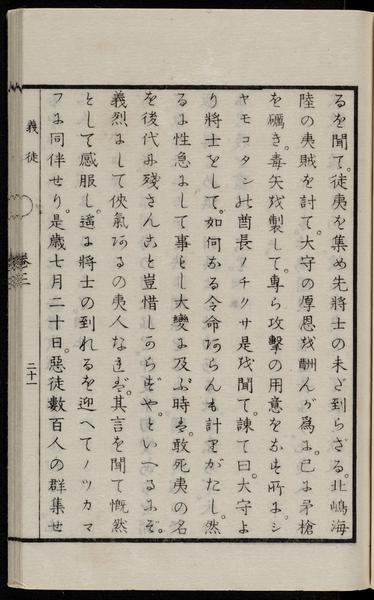 るを聞て。徒夷を集め先將士の未ざ到らざる。北嶋海
陸の夷賊を討て。大守の厚恩を酬んが爲に。已に矛槍
を礪き。毒矢を製して。專ら攻擊の用意をなす所に。シ
ヤモコタンの酋長ノチクサ是を聞て。諌て曰。大守よ
り將士をして。如何なる令命あらんも計りがたし。然
るに性急にして事とし大變に及ぶ時は。敢死夷の名
を後代に殘さんこと豈惜しからずや。といへるにぞ。
義烈にして俠氣あるの夷人なれば。其言を聞て慨然
として感服し。遙に將士の到れるを迎へてノツカマ
フに同伴せり。是歲七月二十日。惡徒數百人の群集せ
義徒
卷二
二十一